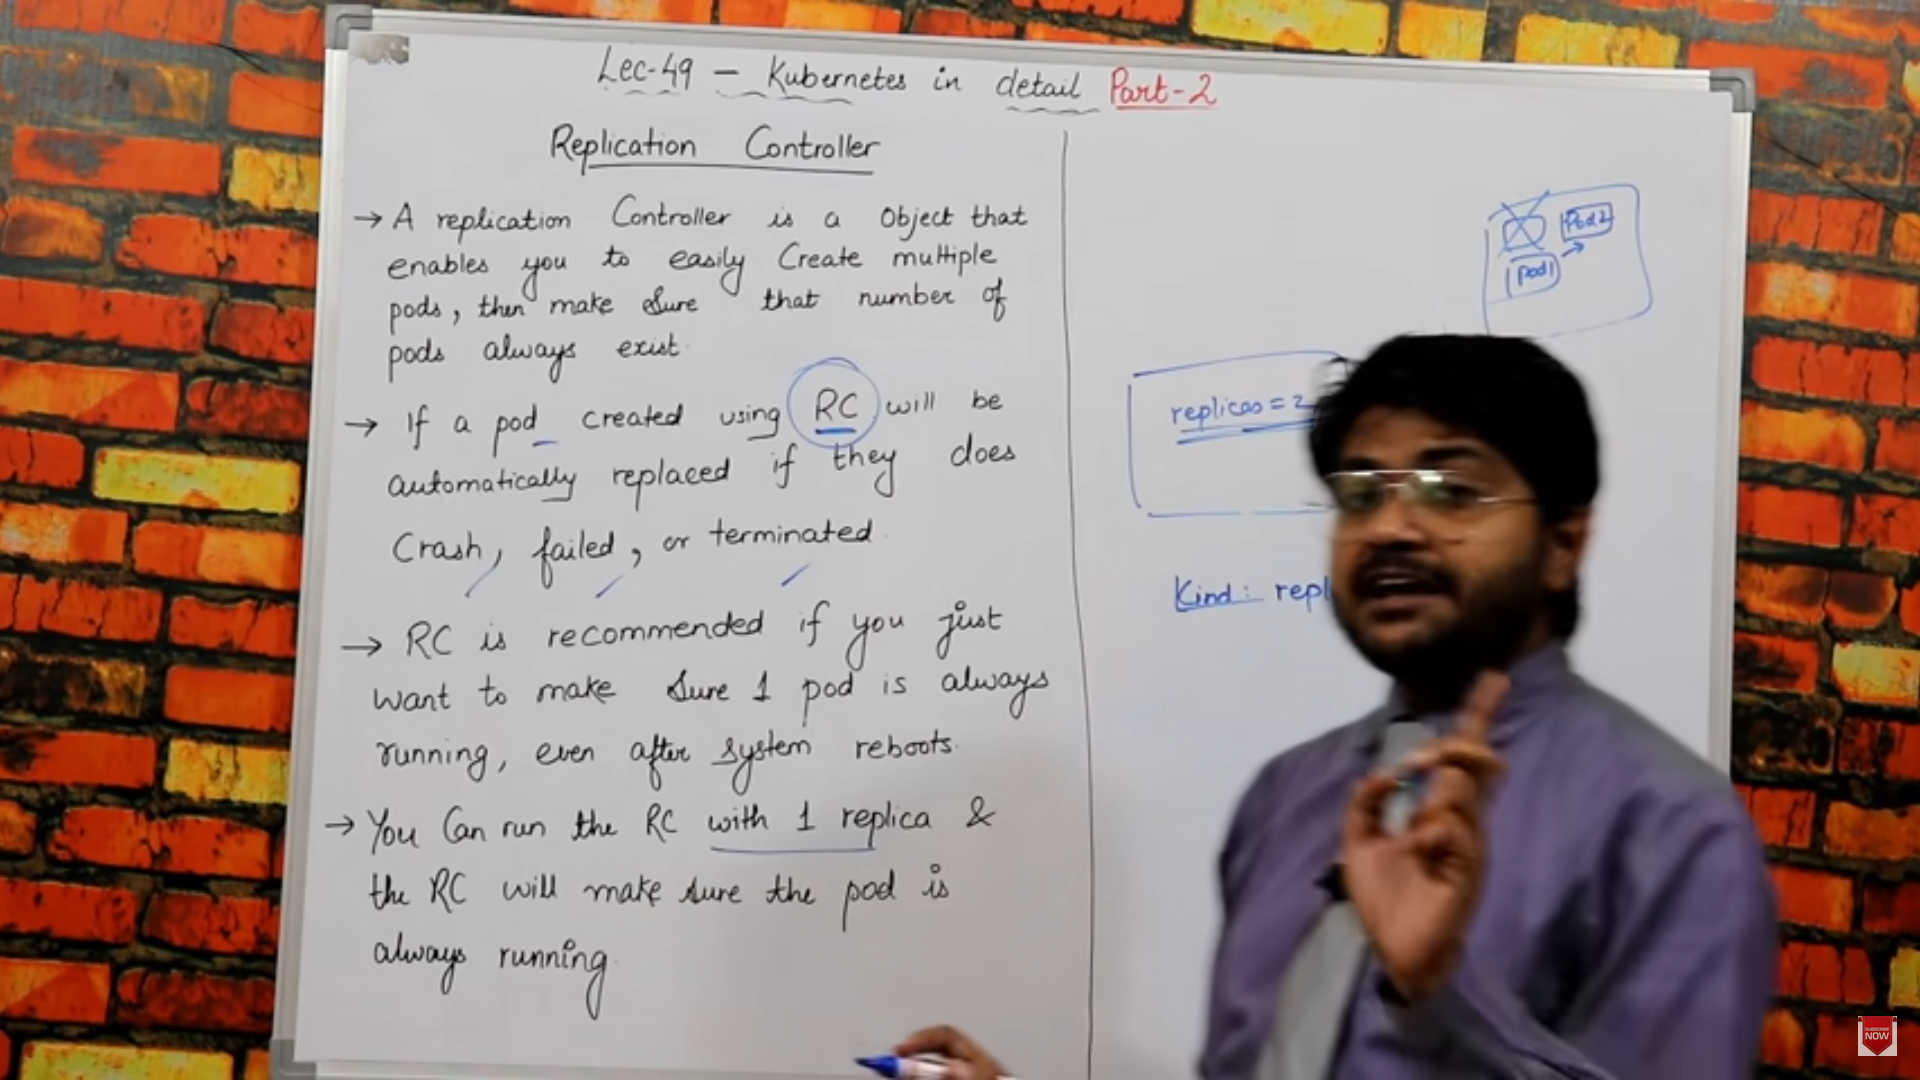 Lec-49 – Kubernetes in detail Part-2
Replication Controller
→ A replication Controller is a Object that
enables you to easily Create multiple
pods, then make sure that number of
pods always exist.
→ If a pod created using RC will be
automatically replaced if they does
Crash, failed, or terminated.
→ RC is recommended if you just
want to make sure 1 pod is always
running, even after system reboots.
→ You Can run the RC with 1 replica &
the RC will make sure the pod is
always running.
Pod2
Pod1
replicas = 2
Kind: repl
SUBSCRIBE
NOW